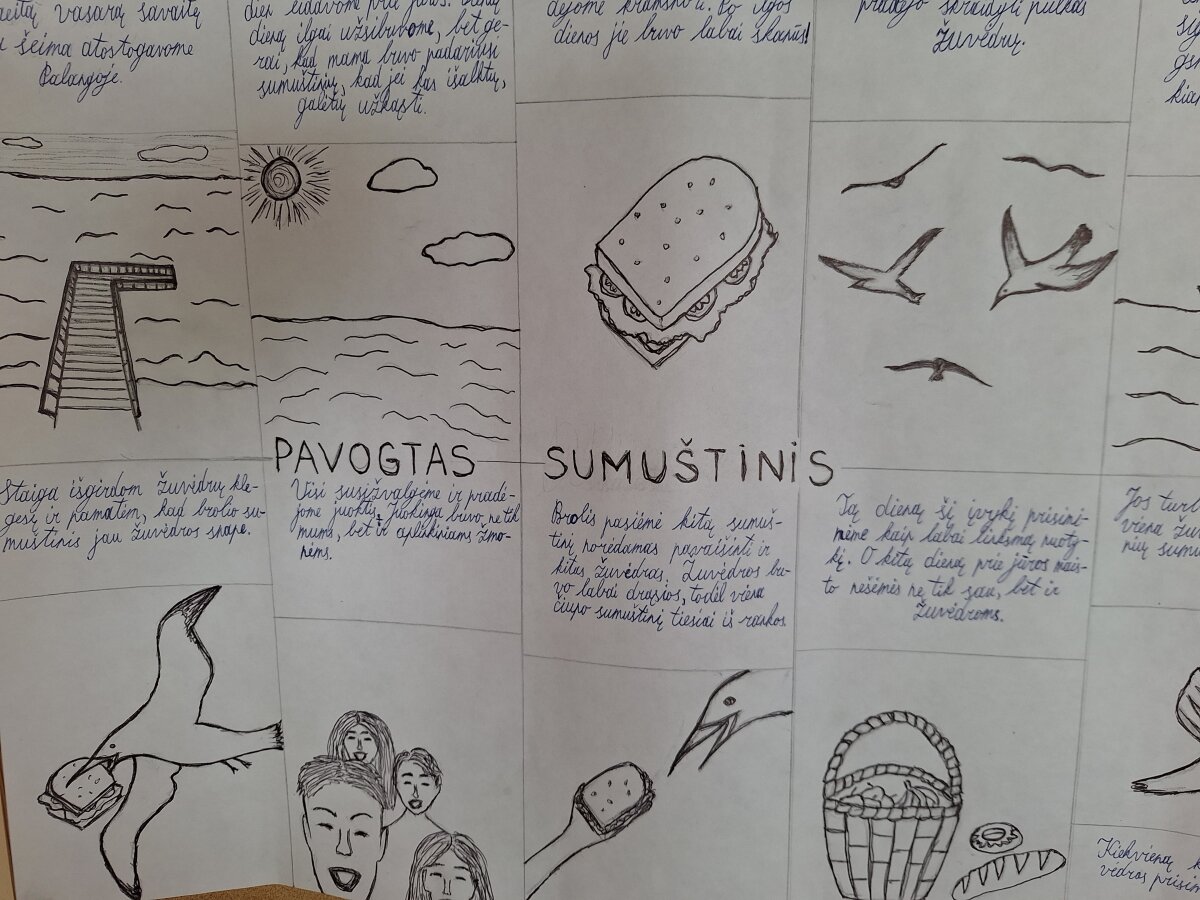 vasarą savaitę
šeima atostogavome
Palangoje.
dieną ilgai užsibuvome, bet ge-
rai, kad mama buvo padariusi
sumuštinių, kad jei kas išalktų,
galėtų užkąsti.
Po ilgos
dienos jie buvo labai skanūs!
pradėjo skraidyti pulkas
žuvėdrų.
PAVOGTAS SUMUŠTINIS
Staiga išgirdom žuvėdrų kle-
gesį ir pamatėm, kad brolio su-
muštinis jau žuvėdros snape.
Visi susižvalgėme ir pradė-
jome juoktis. Juokinga buvo ne tik
mums, bet ir aplinkiniams žmo-
nėms.
Brolis pasiėmė kitą sumuš-
tinį norėdamas pavaišinti ir
kitas žuvėdras. Žuvėdros bu-
vo labai drąsios, todėl viena
čiupo sumuštinį tiesiai iš rankos.
Tą dieną šį įvykį prisimi-
nėme kaip labai linksmą nuoty-
kį. O kitą dieną prie jūros mais-
to nešėmės ne tik sau, bet ir
žuvėdroms.
Jos
viena
nių
Kiekvieną